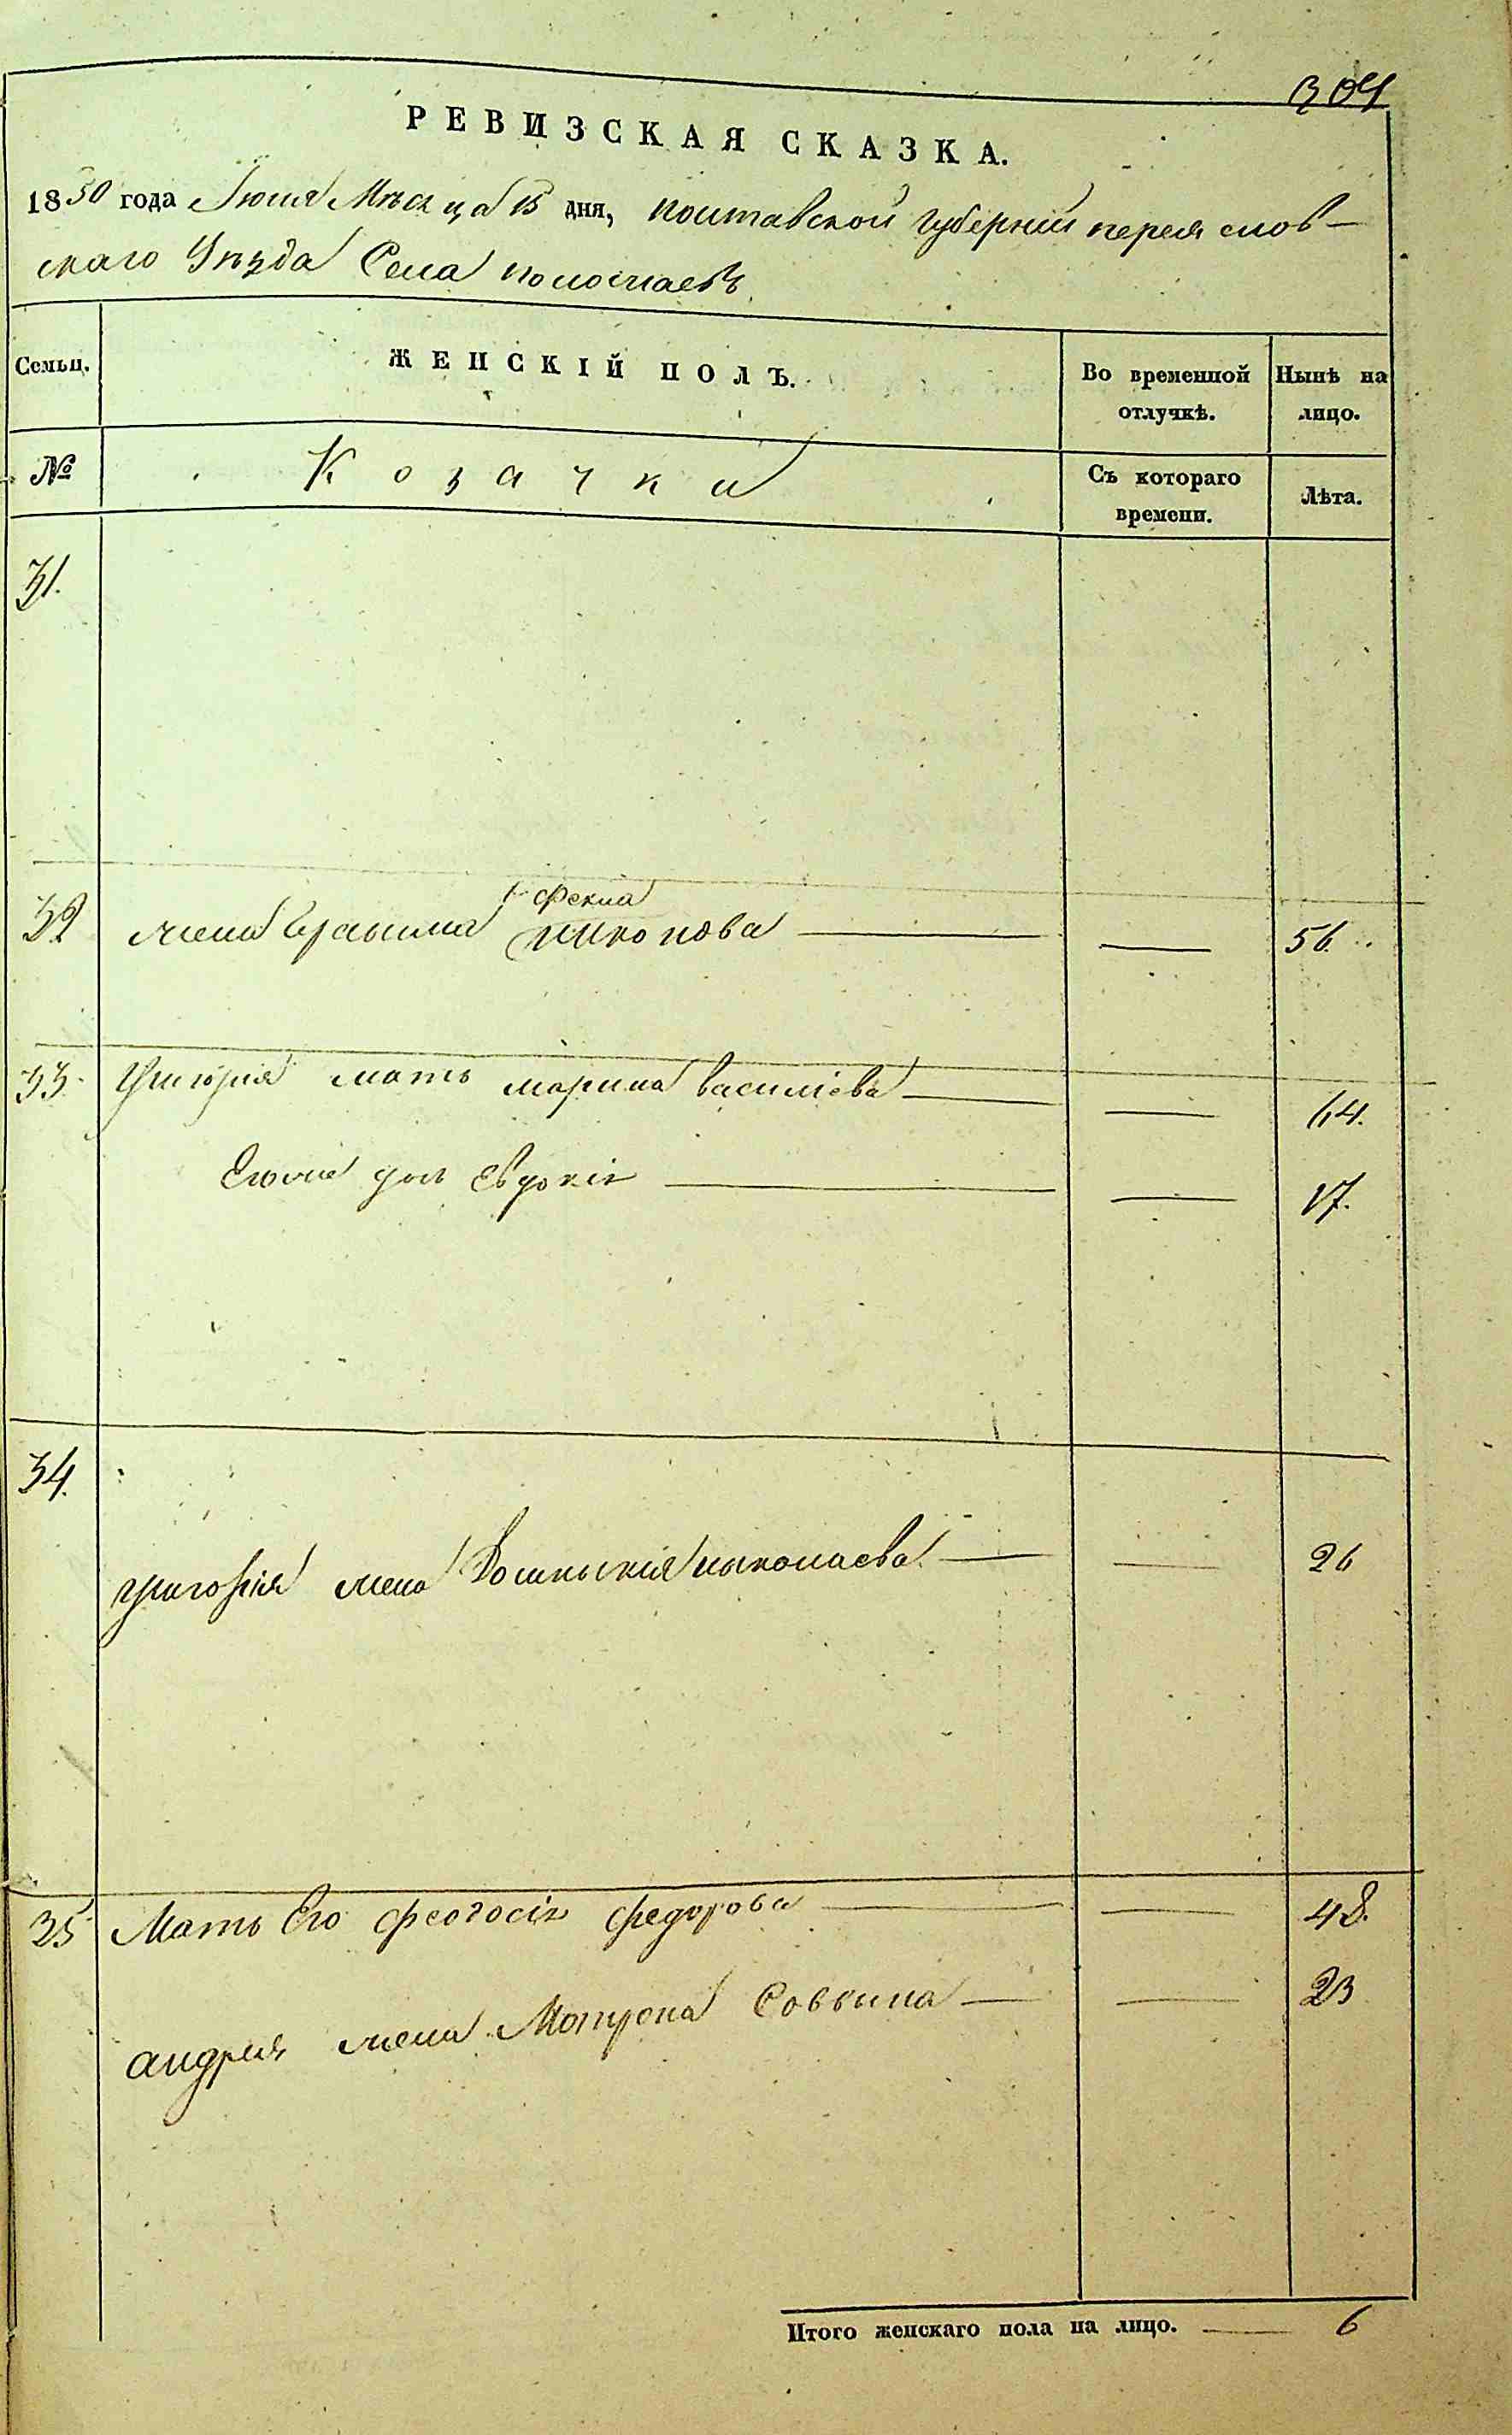 304
РЕВИЗСКАЯ СКАЗКА.
1850 года Июля Мѣсяца 15 дня, полтавской губерніи переяслов-
скаго Уѣзда Села
Семьи. ЖЕНСКІЙ ПОЛЪ. Во временной отлучкѣ. Нынѣ на лицо.
№ Козачки Съ котораго времени. Лѣта.
31.
Фекла
32 жена 56.
33. Григорія мать марина василіева 64.
дочь Евдокія 17.
34.
григорія жена николаева 26
35 Мать Его феодосія федорова 48.
андрея жена Мотрона Саввина 23
Итого женскаго пола на лицо. 6